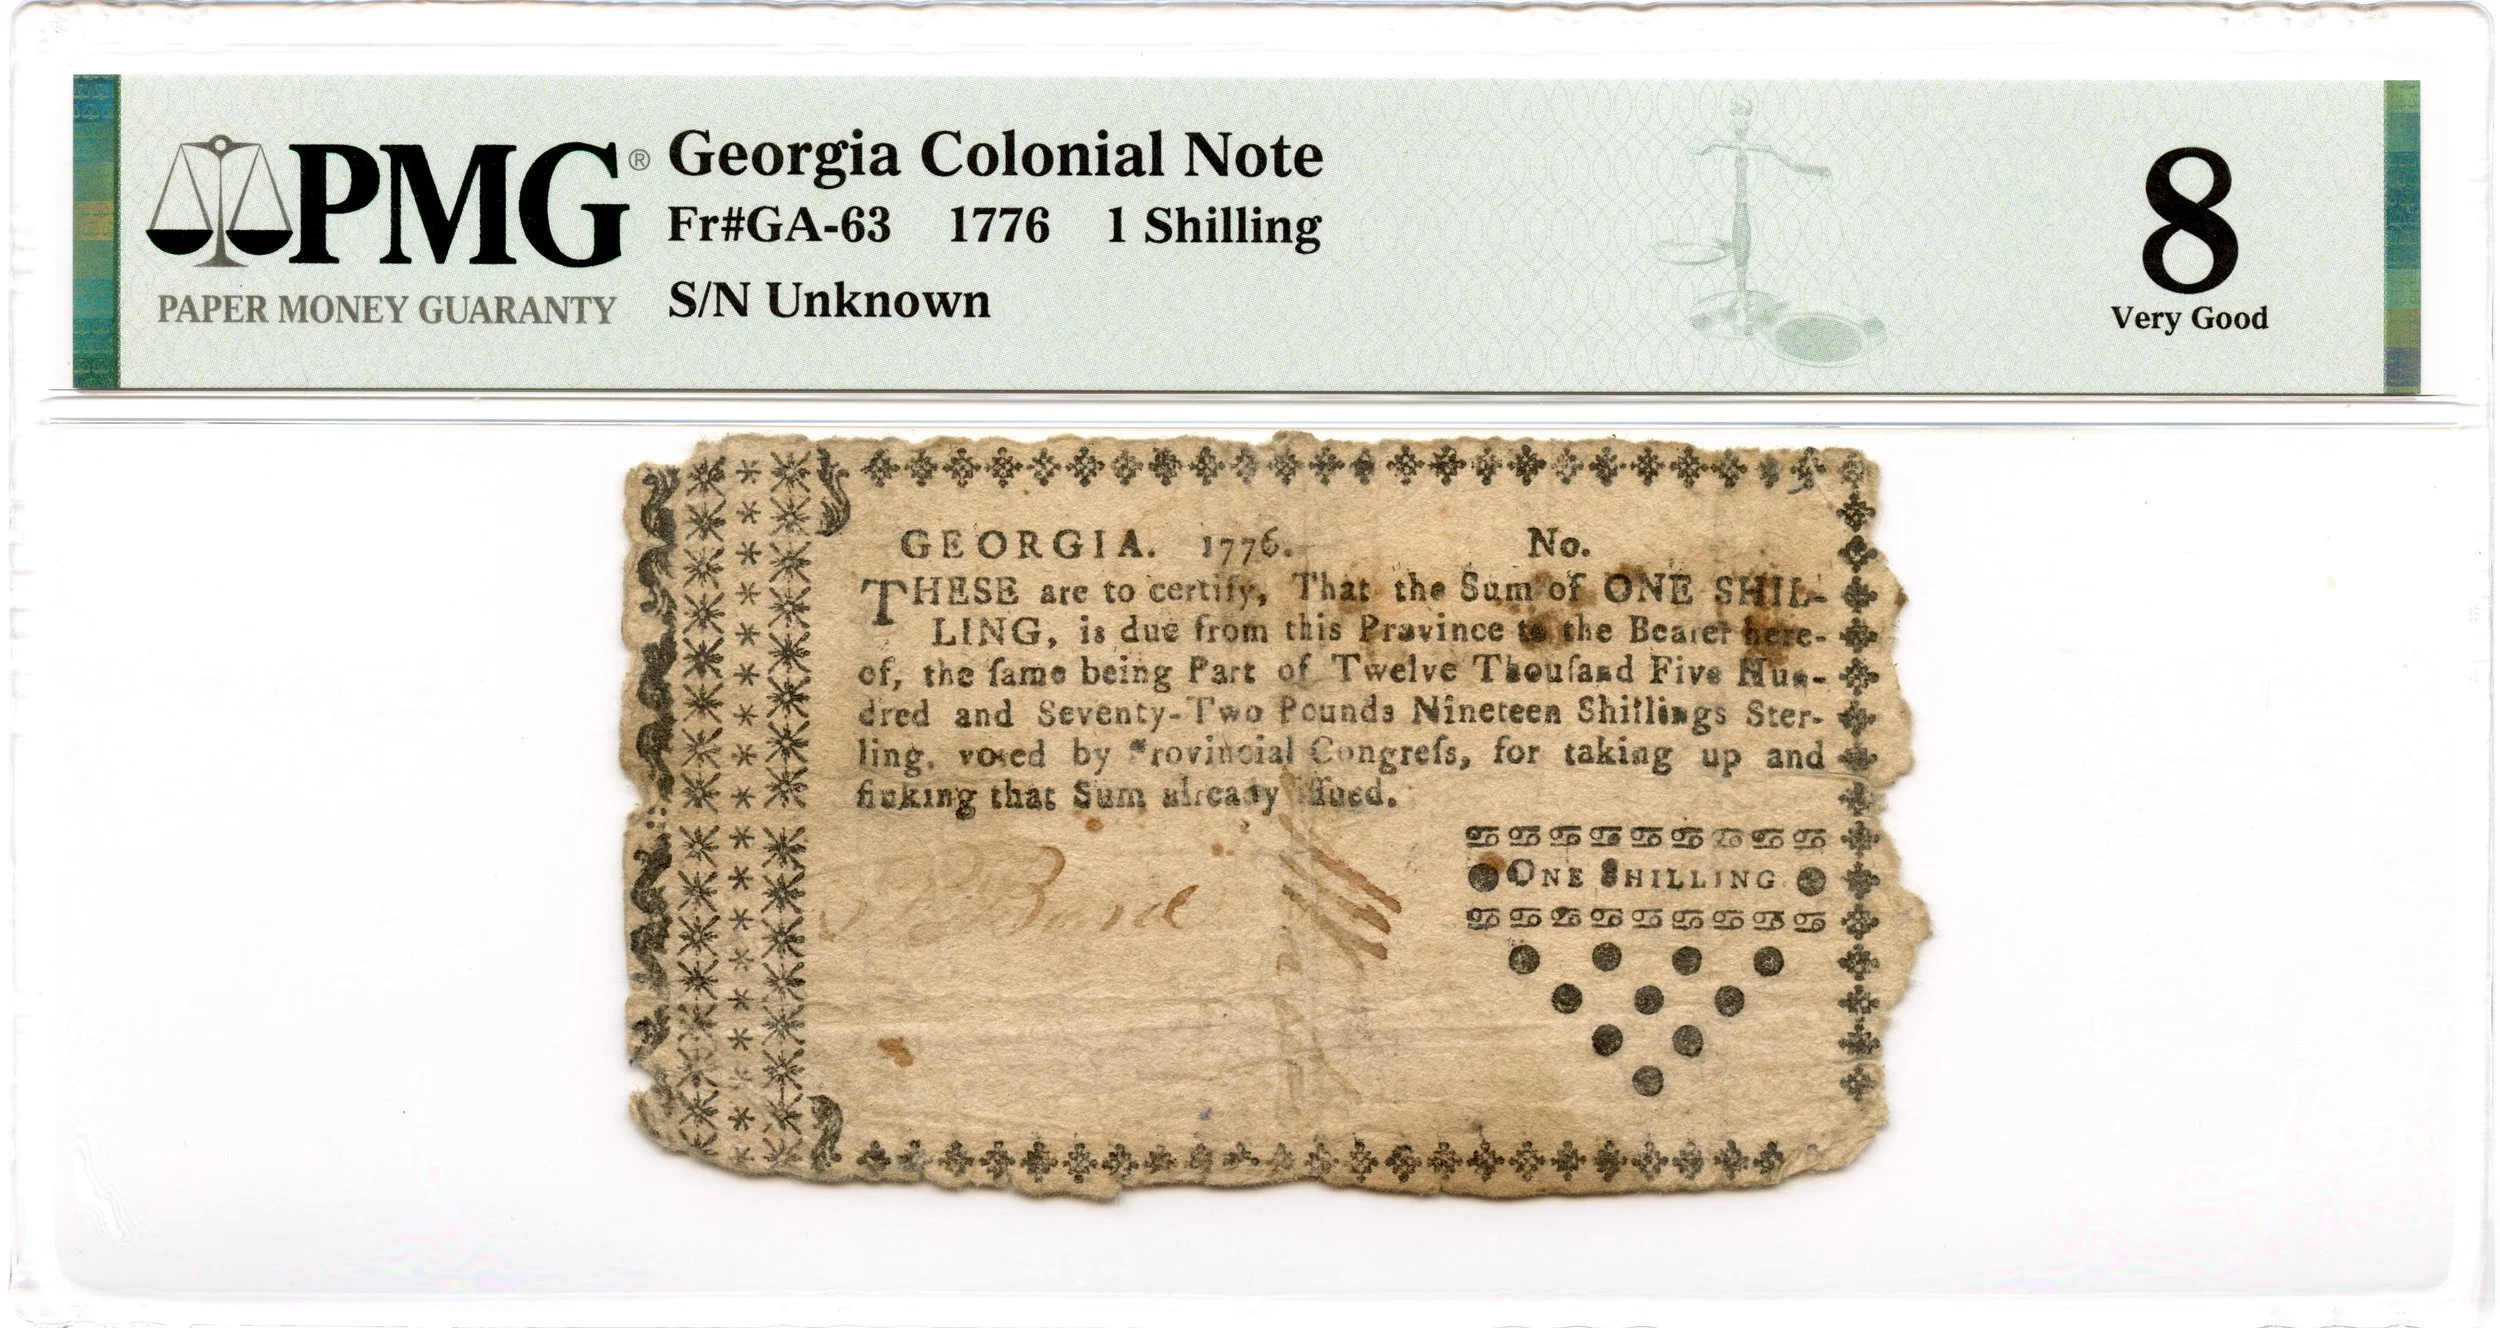 PMG®
PAPER MONEY GUARANTY
Georgia Colonial Note
Fr#GA-63 1776 1 Shilling
S/N Unknown
8
Very Good
GEORGIA. 1776. No.
THESE are to certify, That the Sum of ONE SHIL-
LING, is due from this Province to the Bearer here-
of, the ſame being Part of Twelve Thouſand Five Hun-
dred and Seventy-Two Pounds Nineteen Shillings Ster-
ling, voted by Provincial Congreſs, for taking up and
ſinking that Sum already iſſued.
ONE SHILLING